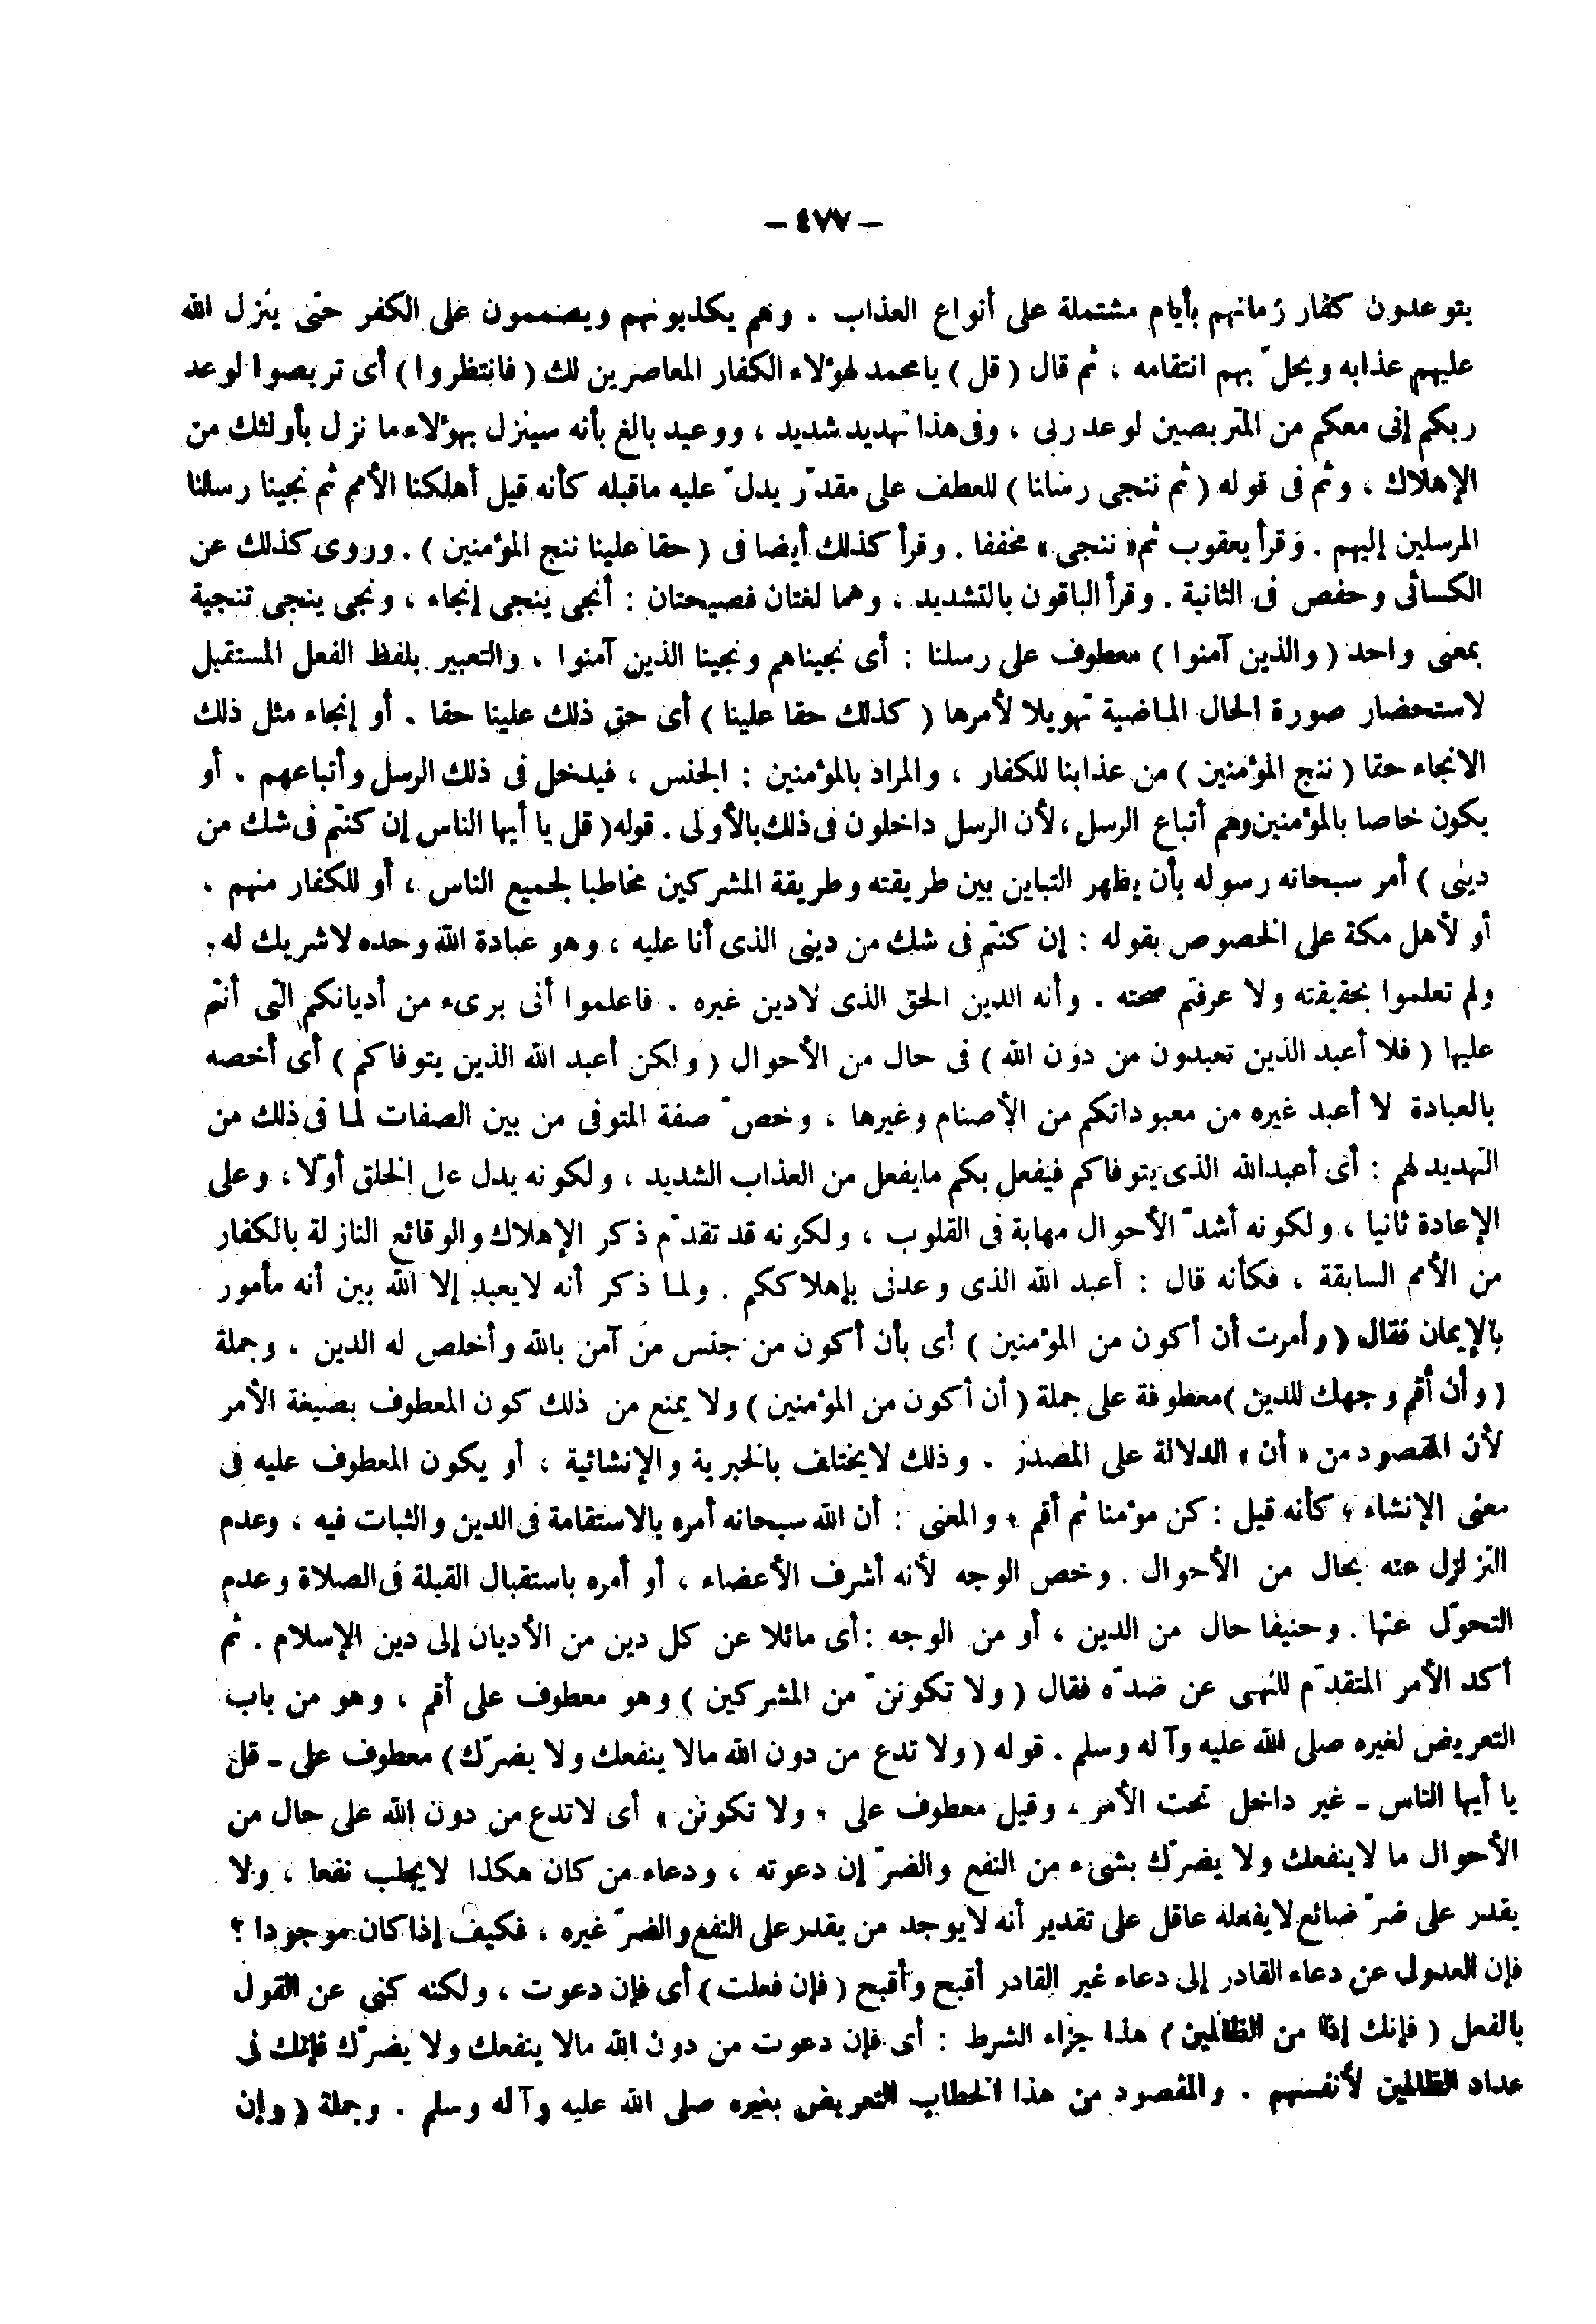 — ٤٧٧ —
يتوعدون كفار زمانهم بأيام مشتملة على أنواع العذاب . وهم يكذبونهم ويصممون على الكفر حتى ينزل الله
عليهم عذابه ويحلّ بهم انتقامه ، ثم قال ( قل ) يا محمد لهؤلاء الكفار المعاصرين لك ( فانتظروا ) أى تربصوا لوعد
ربكم إنى معكم من المتربصين لوعد ربى ، وفى هذا تهديد شديد ، ووعيد بالغ بأنه سينزل بهؤلاء ما نزل بأولئك من
الإهلاك ، وثم فى قوله ( ثم ننجى رسلنا ) للعطف على مقدّر يدلّ عليه ماقبله كأنه قيل أهلكنا الأمم ثم نجينا رسلنا
المرسلين إليهم . وقرأ يعقوب ثم « ننجى » مخففا . وقرأ كذلك أيضا فى ( حقا علينا ننج المؤمنين ) . وروى كذلك عن
الكسائى وحفص فى الثانية . وقرأ الباقون بالتشديد ، وهما لغتان فصيحتان : أنجى ينجى إنجاء ، ونجى ينجى تنجية
بمعنى واحد ( والذين آمنوا ) معطوف على رسلنا : أى نجيناهم ونجينا الذين آمنوا ، والتعبير بلفظ الفعل المستقبل
لاستحضار صورة الحال الماضية تهويلا لأمرها ( كذلك حقا علينا ) أى حق ذلك علينا حقا . أو إنجاء مثل ذلك
الانجاء حقا ( ننج المؤمنين ) من عذابنا للكفار ، والمراد بالمؤمنين : الجنس ، فيدخل فى ذلك الرسل وأتباعهم . أو
يكون خاصا بالمؤمنين وهم أتباع الرسل ، لأن الرسل داخلون فى ذلك بالأولى . قوله ( قل يا أيها الناس إن كنتم فى شك من
دينى ) أمر سبحانه رسوله بأن يظهر التباين بين طريقته وطريقة المشركين مخاطبا لجميع الناس ، أو للكفار منهم .
أو لأهل مكة على الخصوص بقوله : إن كنتم فى شك من دينى الذى أنا عليه ، وهو عبادة الله وحده لا شريك له .
ولم تعلموا بحقيقته ولا عرفتم صحته . وأنه الدين الحق الذى لادين غيره . فاعلموا أنى برىء من أديانكم التى أنتم
عليها ( فلا أعبد الذين تعبدون من دون الله ) فى حال من الأحوال ( ولكن أعبد الله الذين يتوفاكم ) أى أخصه
بالعبادة لا أعبد غيره من معبوداتكم من الأصنام وغيرها ، وخصّ صفة المتوفى من بين الصفات لما فى ذلك من
التهديد لهم : أى أعبد الله الذى يتوفاكم فيفعل بكم مايفعل من العذاب الشديد ، ولكونه يدل على الخلق أوّلا ، وعلى
الإعادة ثانيا ، ولكونه أشدّ الأحوال مهابة فى القلوب ، ولكونه قد تقدّم ذكر الإهلاك والوقائع النازلة بالكفار
من الأمم السابقة ، فكأنه قال : أعبد الله الذى وعدنى بإهلاككم . ولما ذكر أنه لايعبد إلا الله بين أنه مأمور
بالإيمان فقال ( وأمرت أن أكون من المؤمنين ) أى بأن أكون من جنس من آمن بالله وأخلص له الدين ، وجملة
( وأن أقم وجهك للدين ) معطوفة على جملة ( أن أكون من المؤمنين ) ولا يمنع من ذلك كون المعطوف بصيغة الأمر
لأن المقصود من « أن » الدلالة على المصدر . وذلك لايختلف بالخبرية والإنشائية ، أو يكون المعطوف عليه فى
معنى الإنشاء ؛ كأنه قيل : كن مؤمنا ثم أقم ، والمعنى : أن الله سبحانه أمره بالاستقامة فى الدين والثبات فيه ، وعدم
التزلزل عنه بحال من الأحوال . وخص الوجه لأنه أشرف الأعضاء ، أو أمره باستقبال القبلة فى الصلاة وعدم
التحوّل عنها . وحنيفا حال من الدين ، أو من الوجه : أى مائلا عن كل دين من الأديان إلى دين الإسلام . ثم
أكد الأمر المتقدّم للنهى عن ضدّه فقال ( ولا تكوننّ من المشركين ) وهو معطوف على أقم ، وهو من باب
التعريض لغيره صلى الله عليه وآله وسلم . قوله ( ولا تدع من دون الله مالا ينفعك ولا يضرّك ) معطوف على ــ قل
يا أيها الناس ــ غير داخل تحت الأمر ، وقيل معطوف على « ولا تكونن » أى لاتدع من دون الله على حال من
الأحوال ما لاينفعك ولا يضرّك بشىء من النفع والضرّ إن دعوته ، ودعاء من كان هكذا لايجلب نفعا ، ولا
يقدر على ضرّ ضائع لايفعله عاقل على تقدير أنه لايوجد من يقدر على النفع والضرّ غيره ، فكيف إذا كان موجودا ؟
فإن العدول عن دعاء القادر إلى دعاء غير القادر أقبح وأقبح ( فإن فعلت ) أى فإن دعوت ، ولكنه كنى عن القول
بالفعل ( فإنك إذا من الظالمين ) هذا جزاء الشرط : أى فإن دعوت من دون الله مالا ينفعك ولا يضرّك فإنك فى
عداد الظالمين لأنفسهم . والمقصود من هذا الخطاب التعريض بغيره صلى الله عليه وآله وسلم . وجملة ( وإن